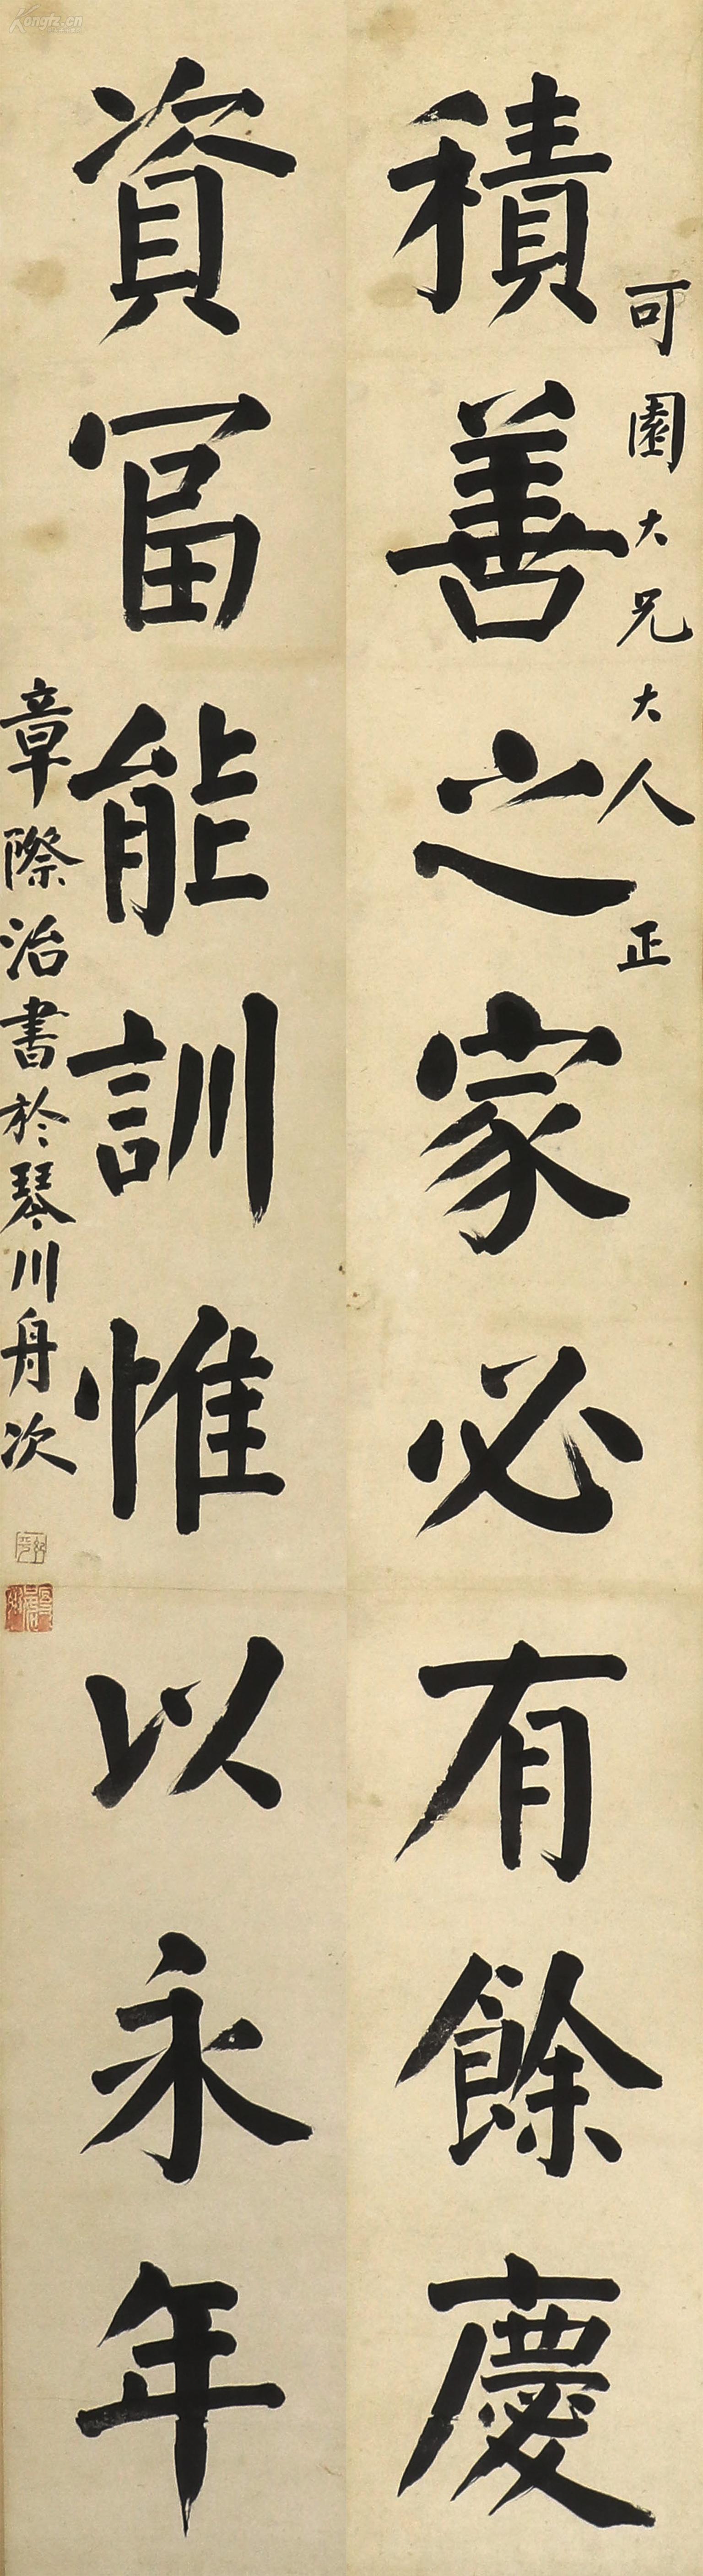 可園大兄大人正
積善之家必有餘慶
資冨能訓惟以永年
章際治書於琴川舟次
Kongfz.cn